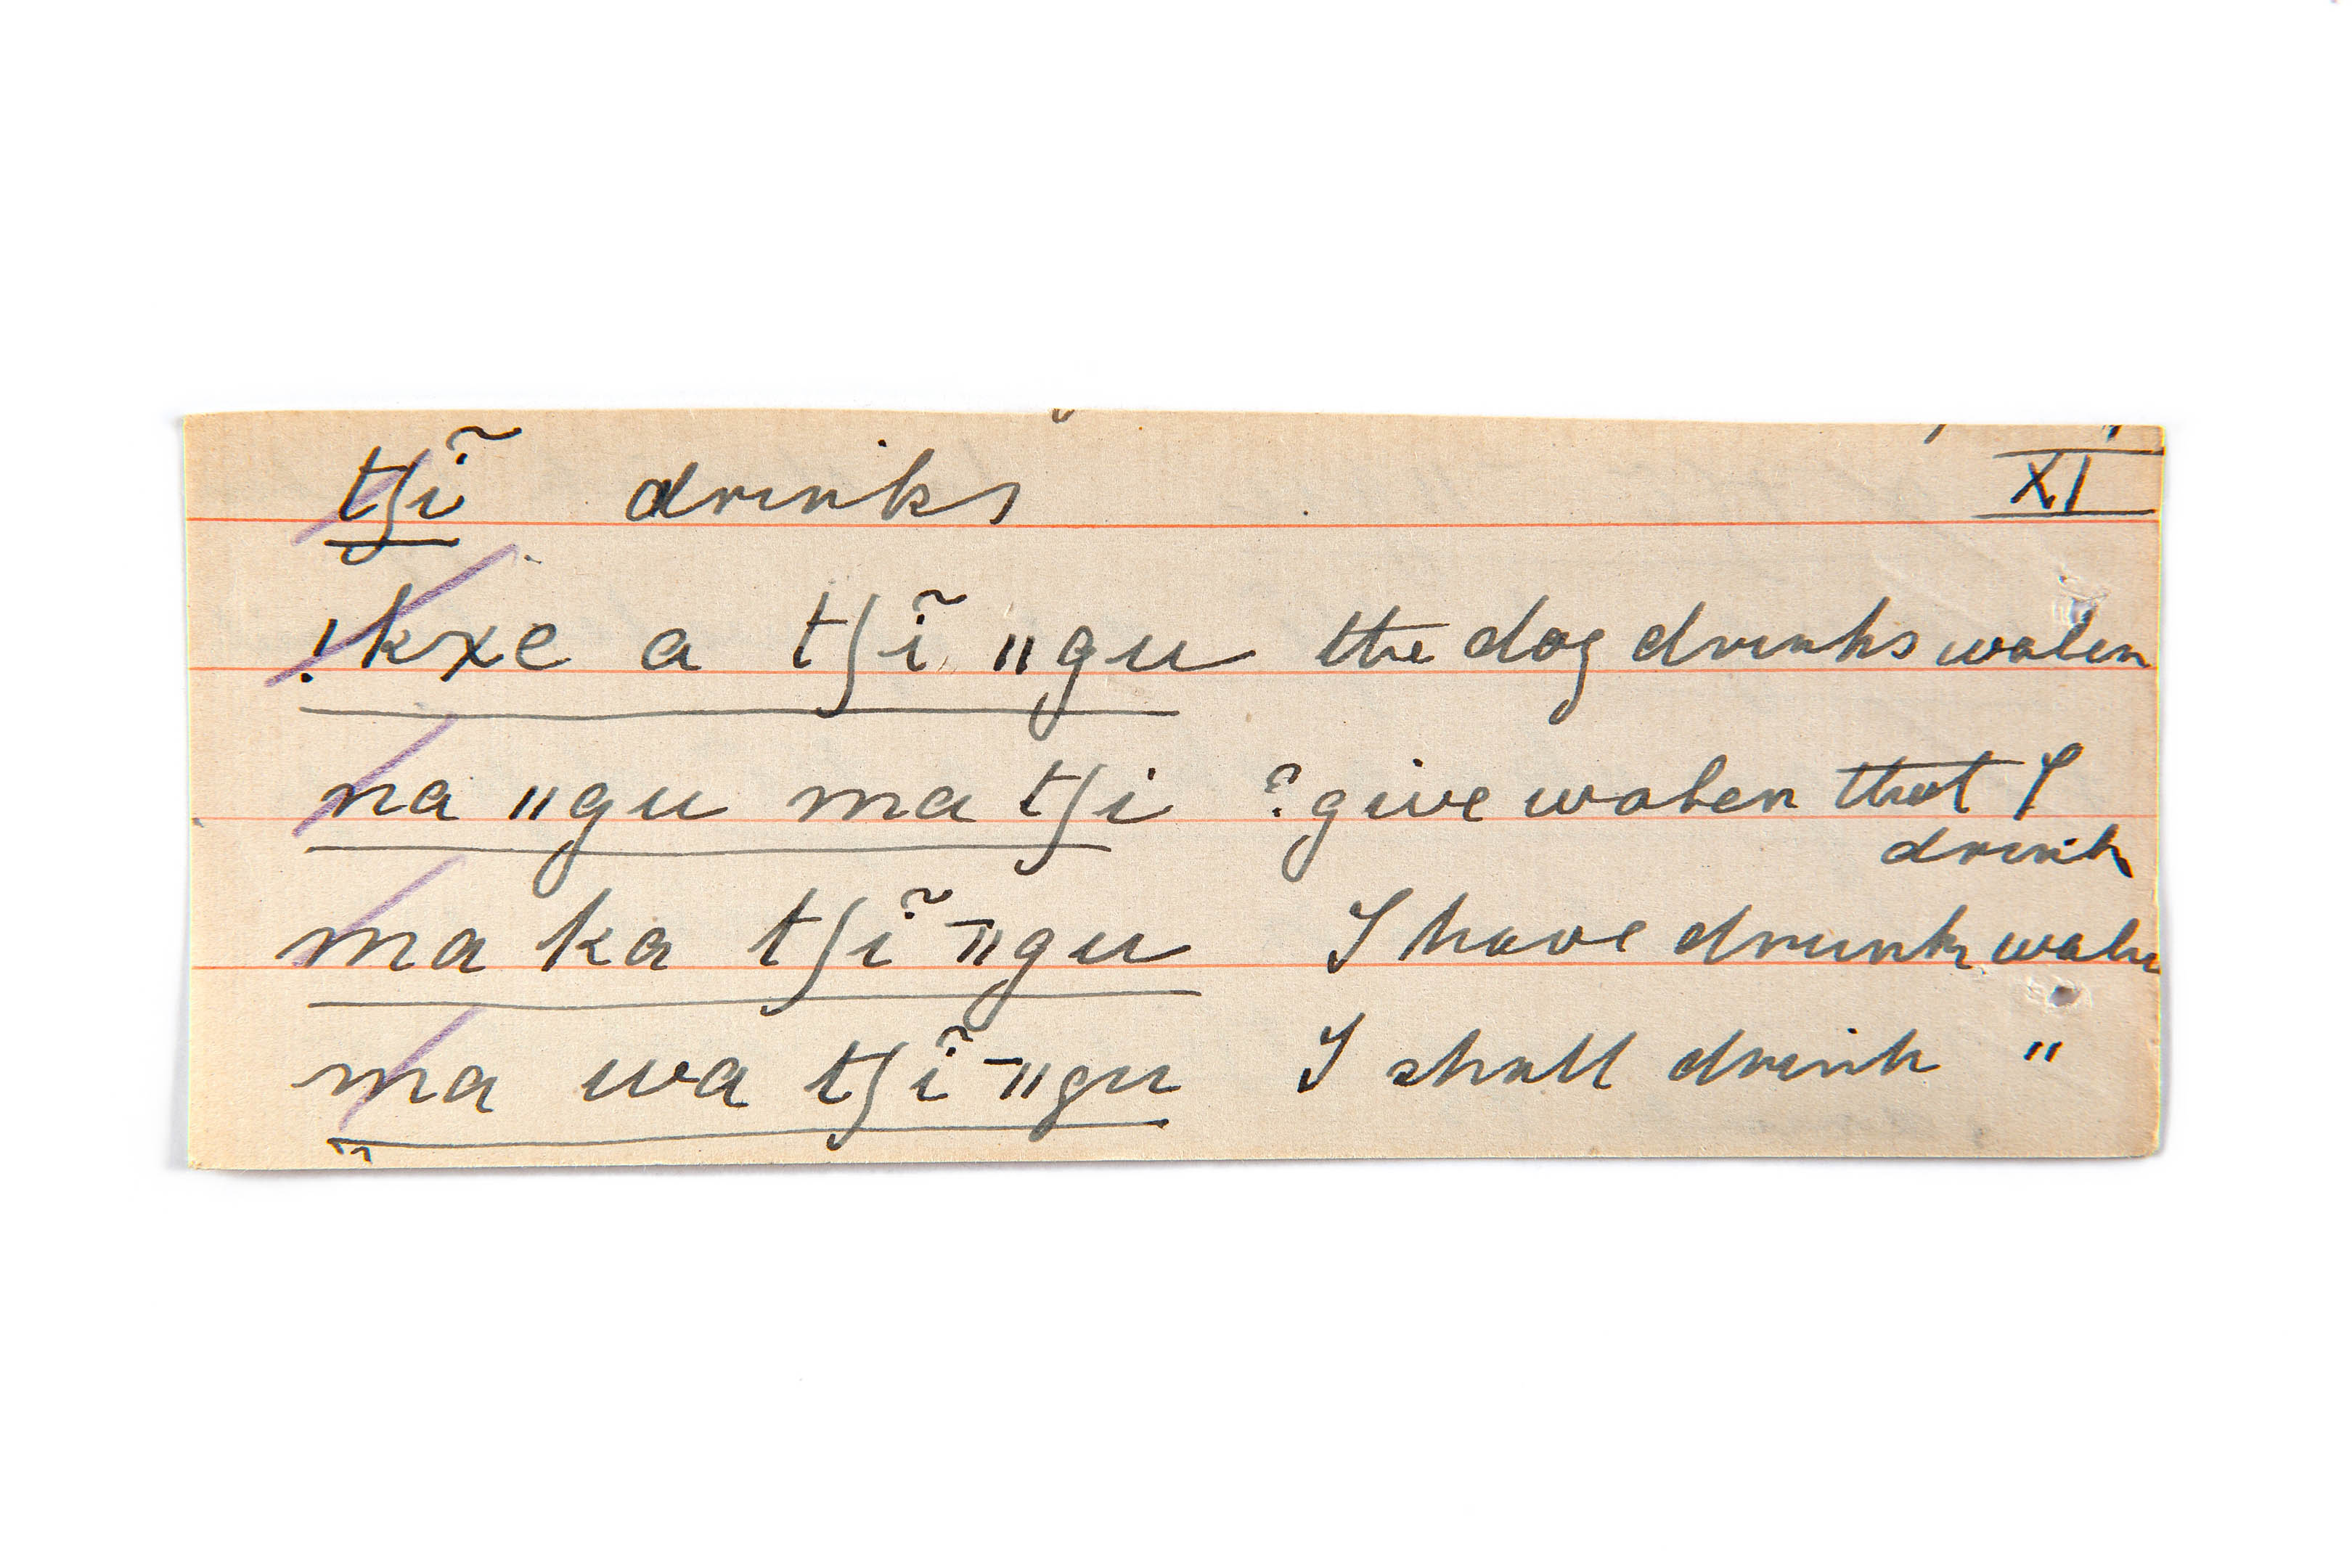 tʃĩ drinks XI
!kxe a tʃĩ ǁgu the dog drinks water
na ǁgu ma tʃi ? give water that I
drink
ma ka tʃĩ ˉǁgu I have drunk water
ma wa tʃĩ ˉǁgu I shall drink "